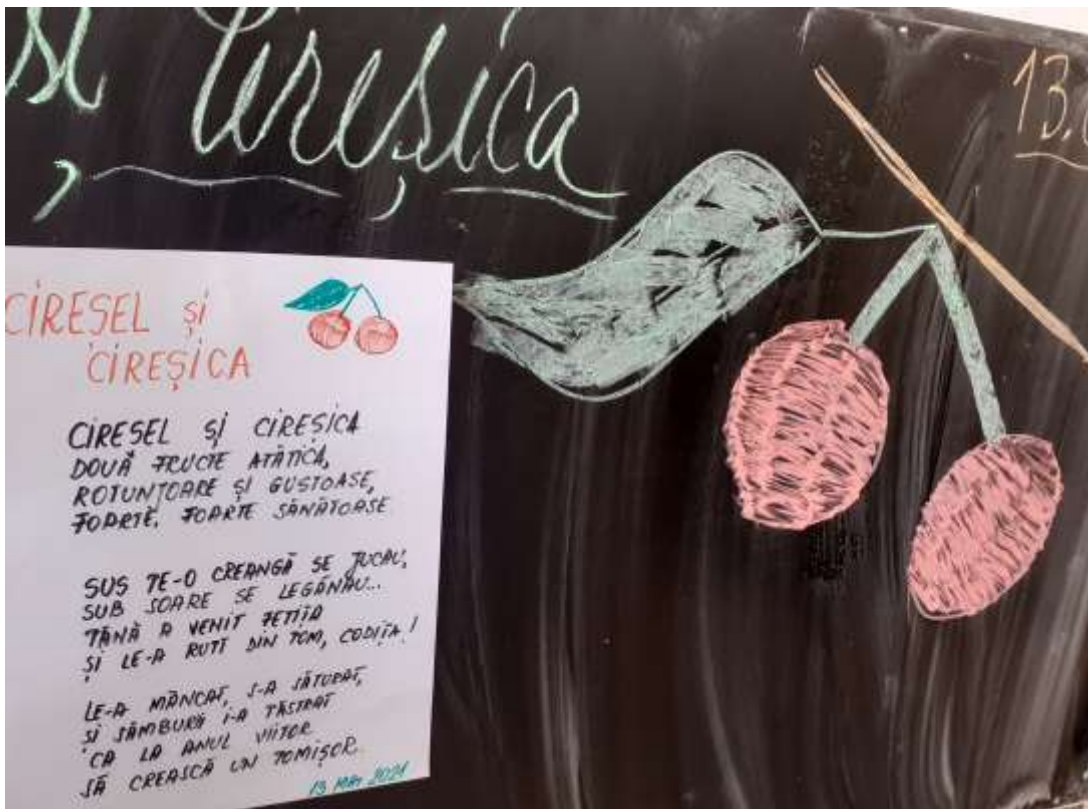 și Cireșica
13.
CIREȘEL și
CIREȘICA
CIREȘEL și CIREȘICA
DOUĂ FRUCTE ATÂTICA,
ROTUNJOARE și GUSTOASE,
FOARTE, FOARTE SĂNĂTOASE
SUS PE-O CREANGĂ SE JUCAU,
SUB SOARE SE LEGĂNAU...
PÂNĂ A VENIT FETIȚA
ȘI LE-A RUPT DIN POM, CODIȚA!
LE-A MÂNCAT, S-A SĂTURAT,
ȘI SÂMBURII I-A PĂSTRAT
CA LA ANUL VIITOR
SĂ CREASCĂ UN POMIȘOR.
13 MAI 2021